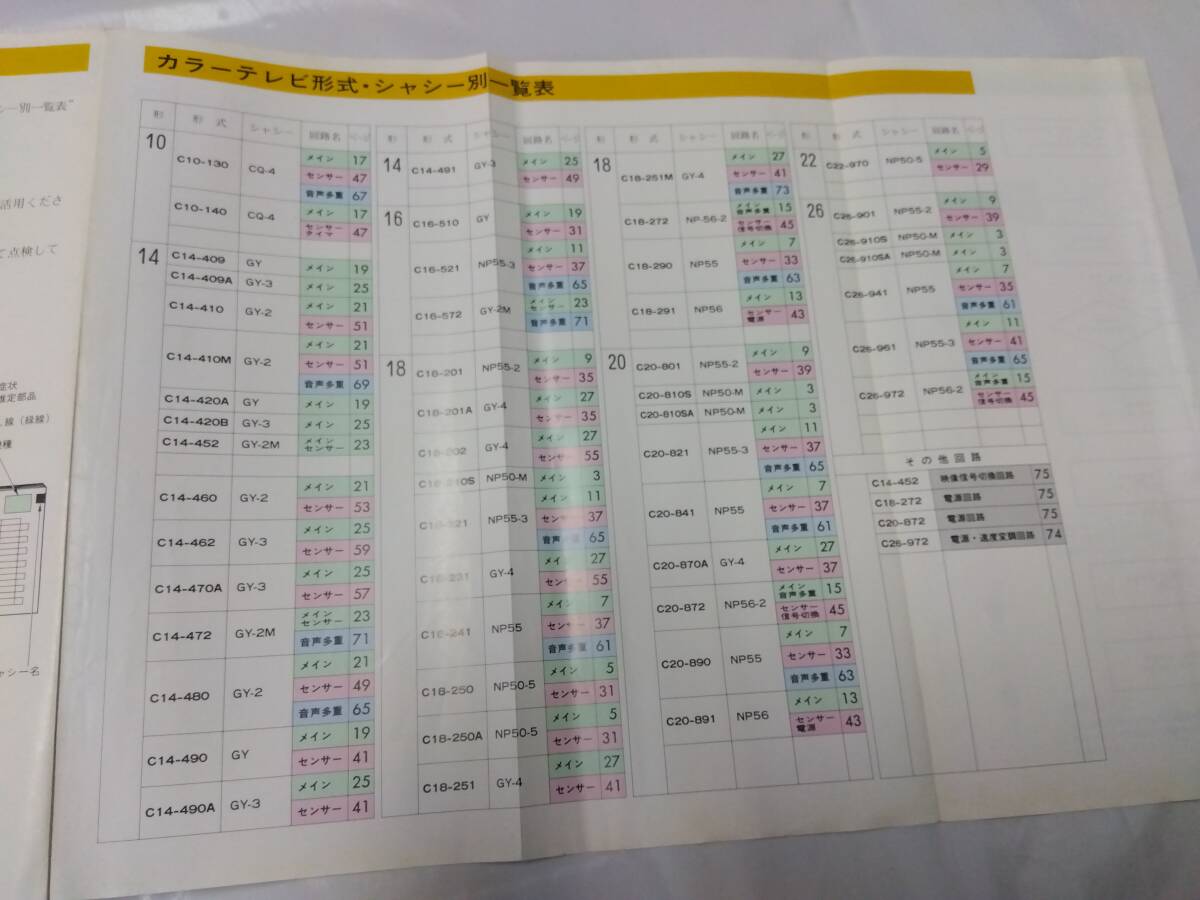 カラーテレビ形式・シャシー別一覧表
形 形式 シャシー 回路名 ページ
10 C10-130 CQ-4 メイン 17
センサー 47
音声多重 67
C10-140 CQ-4 メイン 17
センサー タイマ 47
14 C14-409 GY メイン 19
C14-409A GY-3 メイン 25
C14-410 GY-2 メイン 21
センサー 51
C14-410M GY-2 メイン 21
センサー 51
音声多重 69
C14-420A GY メイン 19
C14-420B GY-3 メイン 25
C14-452 GY-2M メイン センサー 23
C14-460 GY-2 メイン 21
センサー 53
C14-462 GY-3 メイン 25
センサー 59
C14-470A GY-3 メイン 25
センサー 57
C14-472 GY-2M メイン センサー 23
音声多重 71
C14-480 GY-2 メイン 21
センサー 49
音声多重 65
C14-490 GY メイン 19
センサー 41
C14-490A GY-3 メイン 25
センサー 41
形 形式 シャシー 回路名 ページ
14 C14-491 GY-3 メイン 25
センサー 49
16 C16-510 GY メイン 19
センサー 31
C16-521 NP55-3 メイン 11
センサー 37
音声多重 65
C16-572 GY-2M メイン センサー 23
音声多重 71
18 C18-201 NP55-2 メイン 9
センサー 35
C18-201A GY-4 メイン 27
センサー 35
C18-202 GY-4 メイン 27
センサー 55
C18-210S NP50-M メイン 3
C18-221 NP55-3 メイン 11
センサー 37
音声多重 65
C18-231 GY-4 メイン 27
センサー 55
C18-241 NP55 メイン 7
センサー 37
音声多重 61
C18-250 NP50-5 メイン 5
センサー 31
C18-250A NP50-5 メイン 5
センサー 31
C18-251 GY-4 メイン 27
センサー 41
形 形式 シャシー 回路名 ページ
18 C18-251M GY-4 メイン 27
センサー 41
音声多重 73
C18-272 NP-56-2 メイン 音声多重 15
センサー 信号切換 45
C18-290 NP55 メイン 7
センサー 33
音声多重 63
C18-291 NP56 メイン 13
センサー 電源 43
20 C20-801 NP55-2 メイン 9
センサー 39
C20-810S NP50-M メイン 3
C20-810SA NP50-M メイン 3
C20-821 NP55-3 メイン 11
センサー 37
音声多重 65
C20-841 NP55 メイン 7
センサー 37
音声多重 61
C20-870A GY-4 メイン 27
センサー 37
C20-872 NP56-2 メイン 音声多重 15
センサー 信号切換 45
C20-890 NP55 メイン 7
センサー 33
音声多重 63
C20-891 NP56 メイン 13
センサー 電源 43
形 形式 シャシー 回路名 ページ
22 C22-970 NP50-5 メイン 5
センサー 29
26 C26-901 NP55-2 メイン 9
センサー 39
C26-910S NP50-M メイン 3
C26-910SA NP50-M メイン 3
C26-941 NP55 メイン 7
センサー 35
音声多重 61
C26-961 NP55-3 メイン 11
センサー 41
音声多重 65
C26-972 NP56-2 メイン 音声多重 15
センサー 信号切換 45
その他回路
C14-452 映像信号切換回路 75
C18-272 電源回路 75
C20-872 電源回路 75
C26-972 電源・速度変調回路 74
シー別一覧表”
活用くださ
て点検して
症状
推定部品
線（緑線）
機種
シャシー名